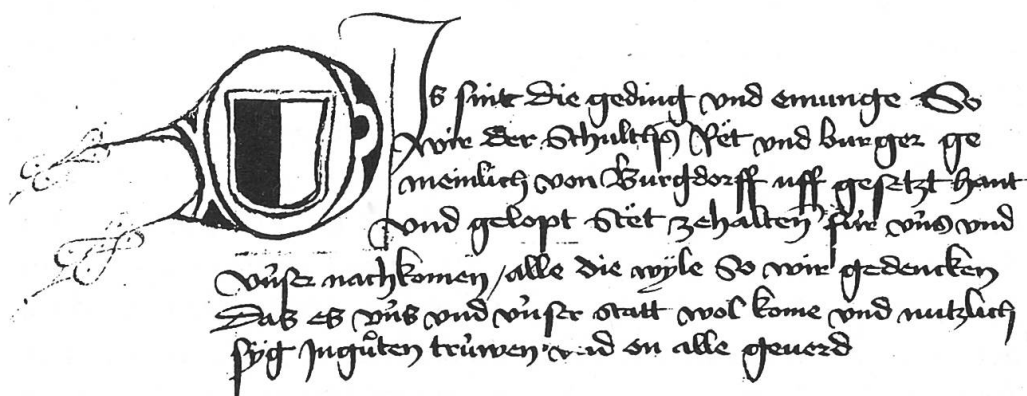 Dis sint die geding und emunge So
wir der Schulthß Rët und burger ge
meinlich von Burgdorff uff gesetzt hant
und gelopt stët zehalten für vns und
vnser nachkomen / alle die wyle So wir gedencken
Daß es vns vnd vnser statt wol kome vnd nutzlich
syg Inguͦten trüwen vnd on alle geuerd